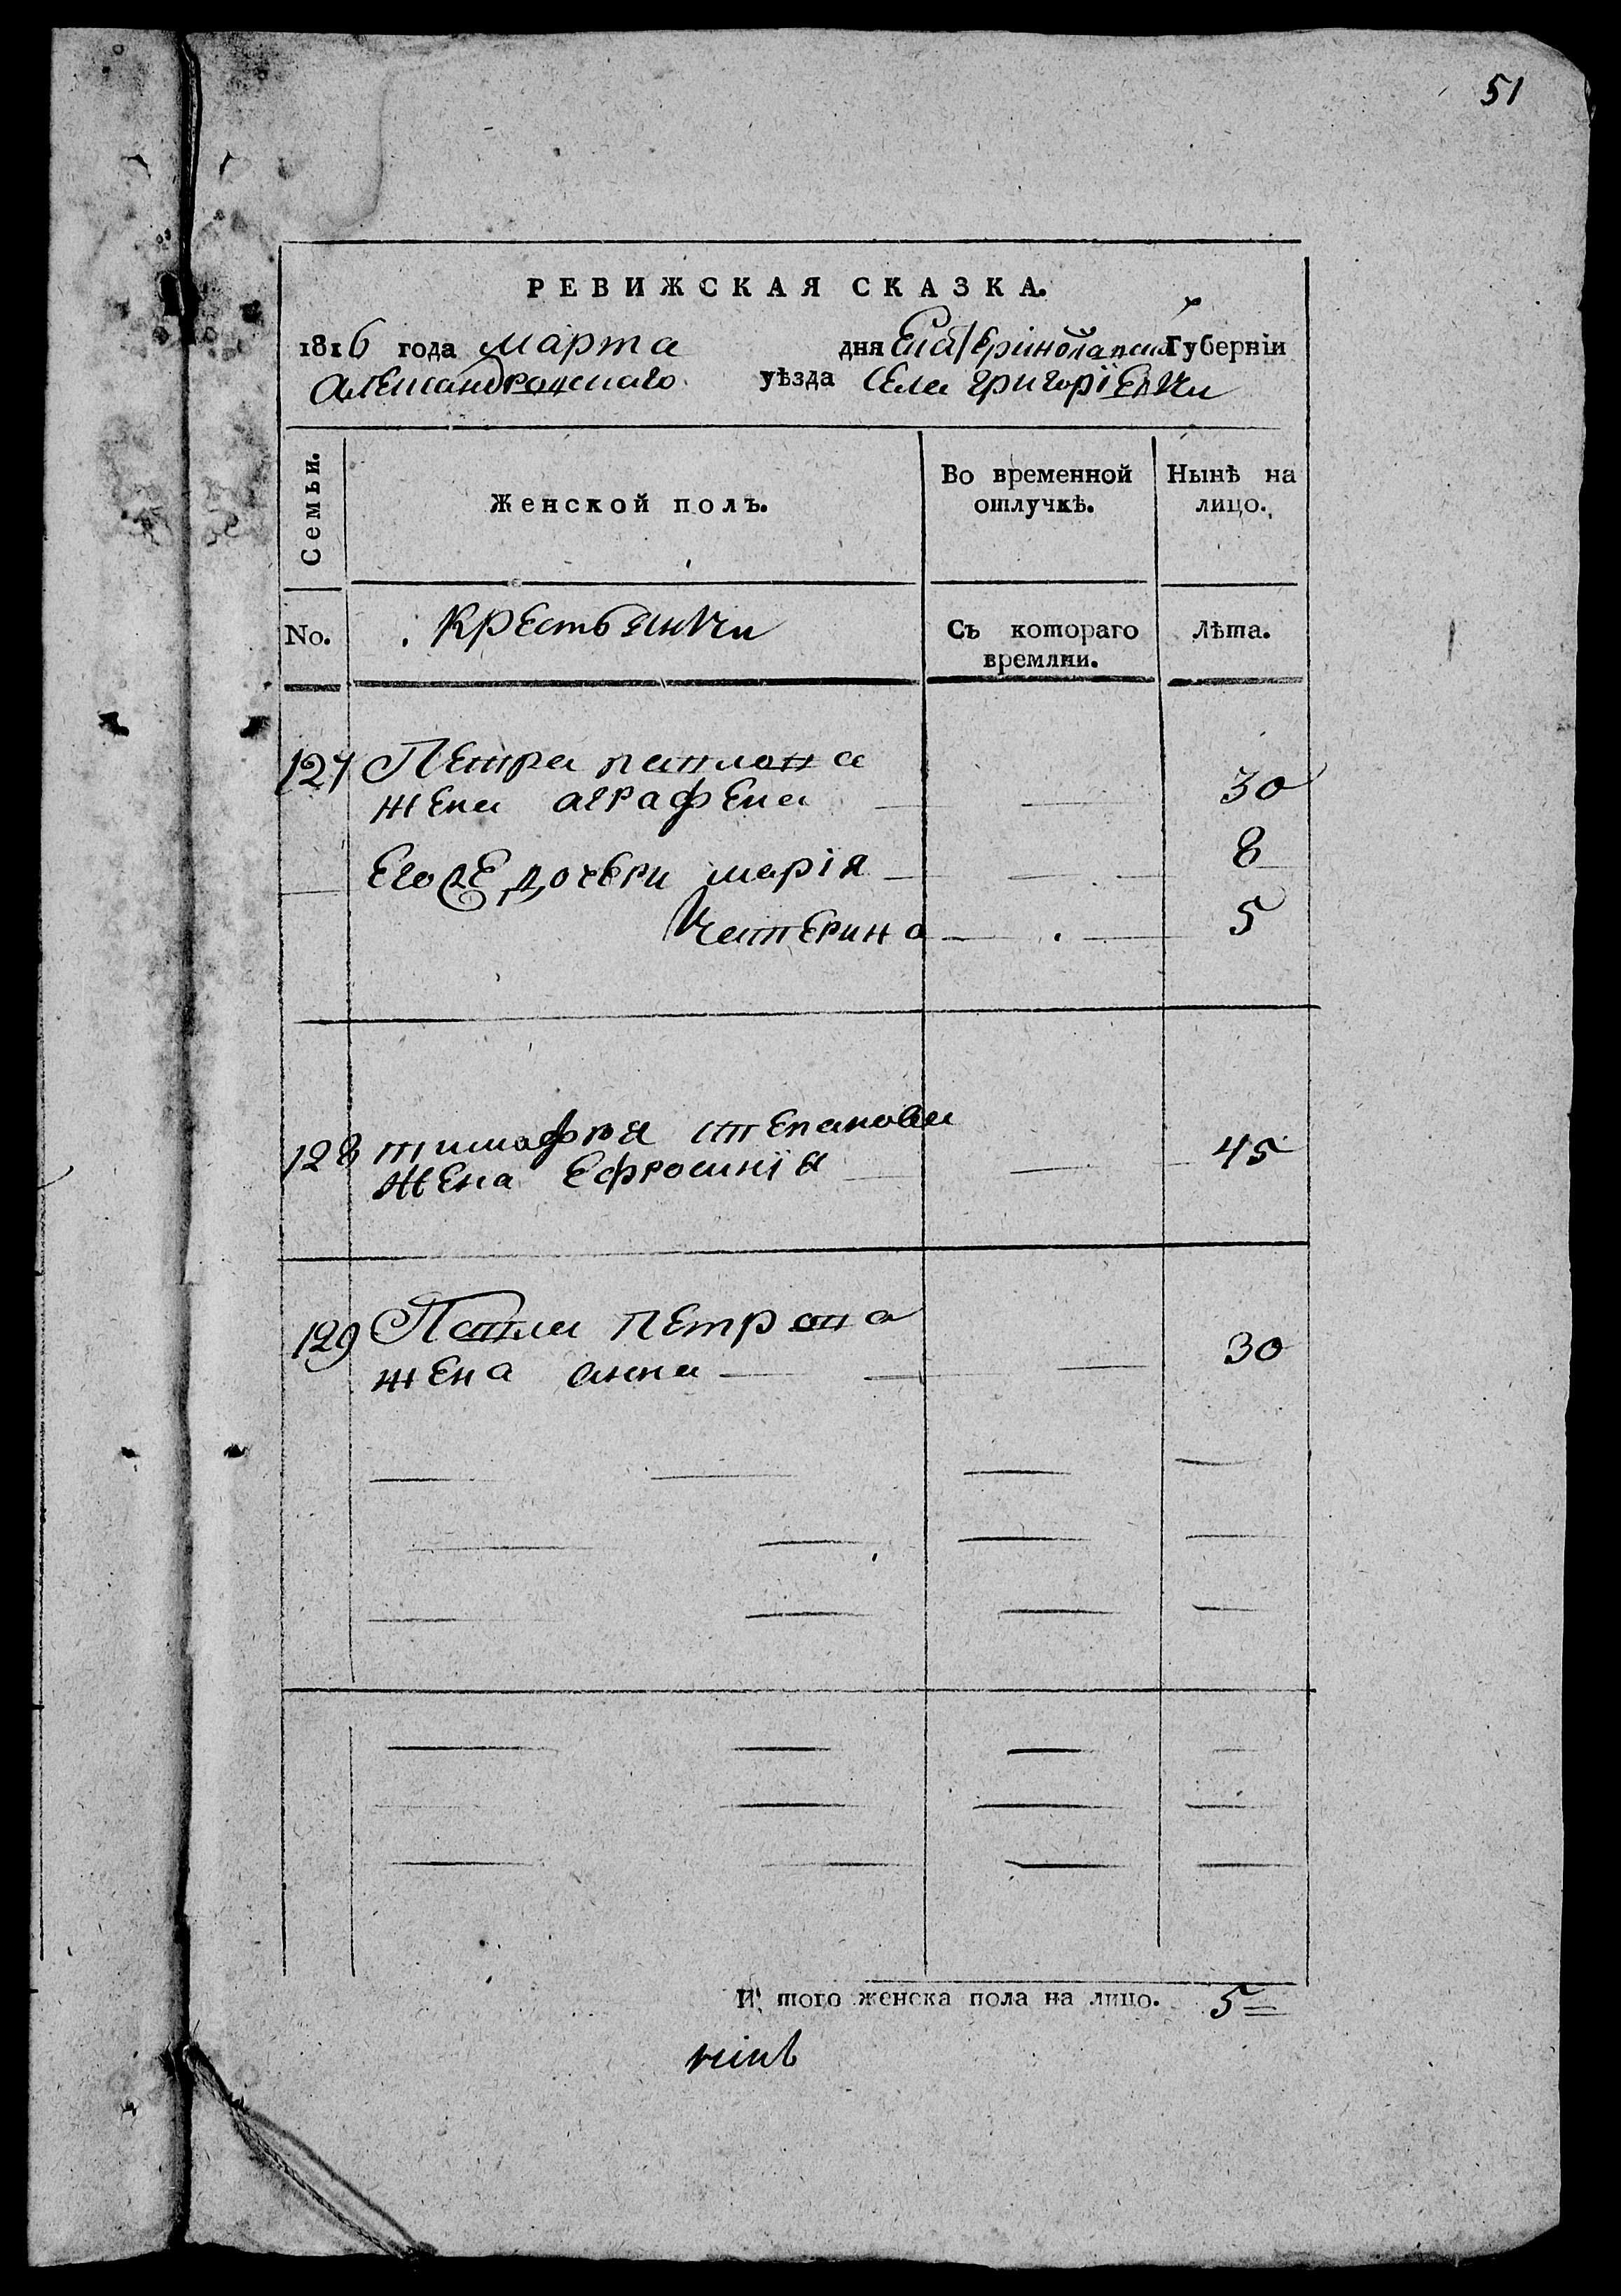 51
РЕВИЖСКАЯ СКАЗКА.
1816 года марта дня Екатеринославской Губерніи
Александровскаго уѣзда Села григоріевки
Семьи. Женской полъ. Во временной отлучкѣ. Нынѣ на лицо.
No. крестьянки Съ котораго времяни. Лѣта.
127 Петра павлова
жена аграфена 30
Его же дочери марія 8
катерина 5
128 тимофея степанова
жена Ефросинія 45
129 Павла петрова
жена анна 30
И того женска пола на лицо. 5